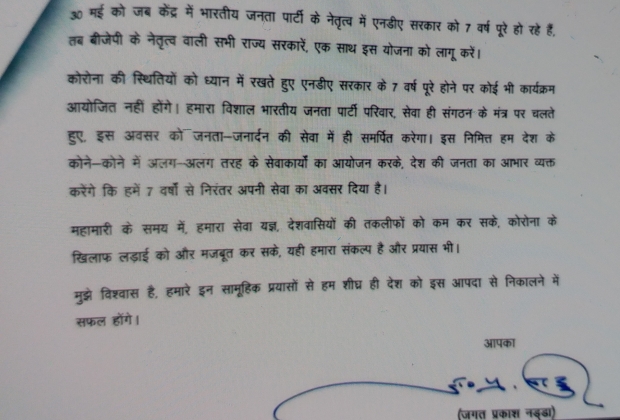 30 मई को जब केंद्र में भारतीय जनता पार्टी के नेतृत्व में एनडीए सरकार को 7 वर्ष पूरे हो रहे हैं,
तब बीजेपी के नेतृत्व वाली सभी राज्य सरकारें, एक साथ इस योजना को लागू करें।
कोरोना की स्थितियों को ध्यान में रखते हुए एनडीए सरकार के 7 वर्ष पूरे होने पर कोई भी कार्यक्रम
आयोजित नहीं होंगे। हमारा विशाल भारतीय जनता पार्टी परिवार, सेवा ही संगठन के मंत्र पर चलते
हुए, इस अवसर को जनता-जनार्दन की सेवा में ही समर्पित करेगा। इस निमित्त हम देश के
कोने–कोने में अलग–अलग तरह के सेवाकार्यों का आयोजन करके, देश की जनता का आभार व्यक्त
करेंगे कि हमें 7 वर्षों से निरंतर अपनी सेवा का अवसर दिया है।
महामारी के समय में, हमारा सेवा यज्ञ, देशवासियों की तकलीफों को कम कर सके, कोरोना के
खिलाफ लड़ाई को और मजबूत कर सके, यही हमारा संकल्प है और प्रयास भी।
मुझे विश्वास है, हमारे इन सामूहिक प्रयासों से हम शीघ्र ही देश को इस आपदा से निकालने में
सफल होंगे।
आपका
(जगत प्रकाश नड्डा)